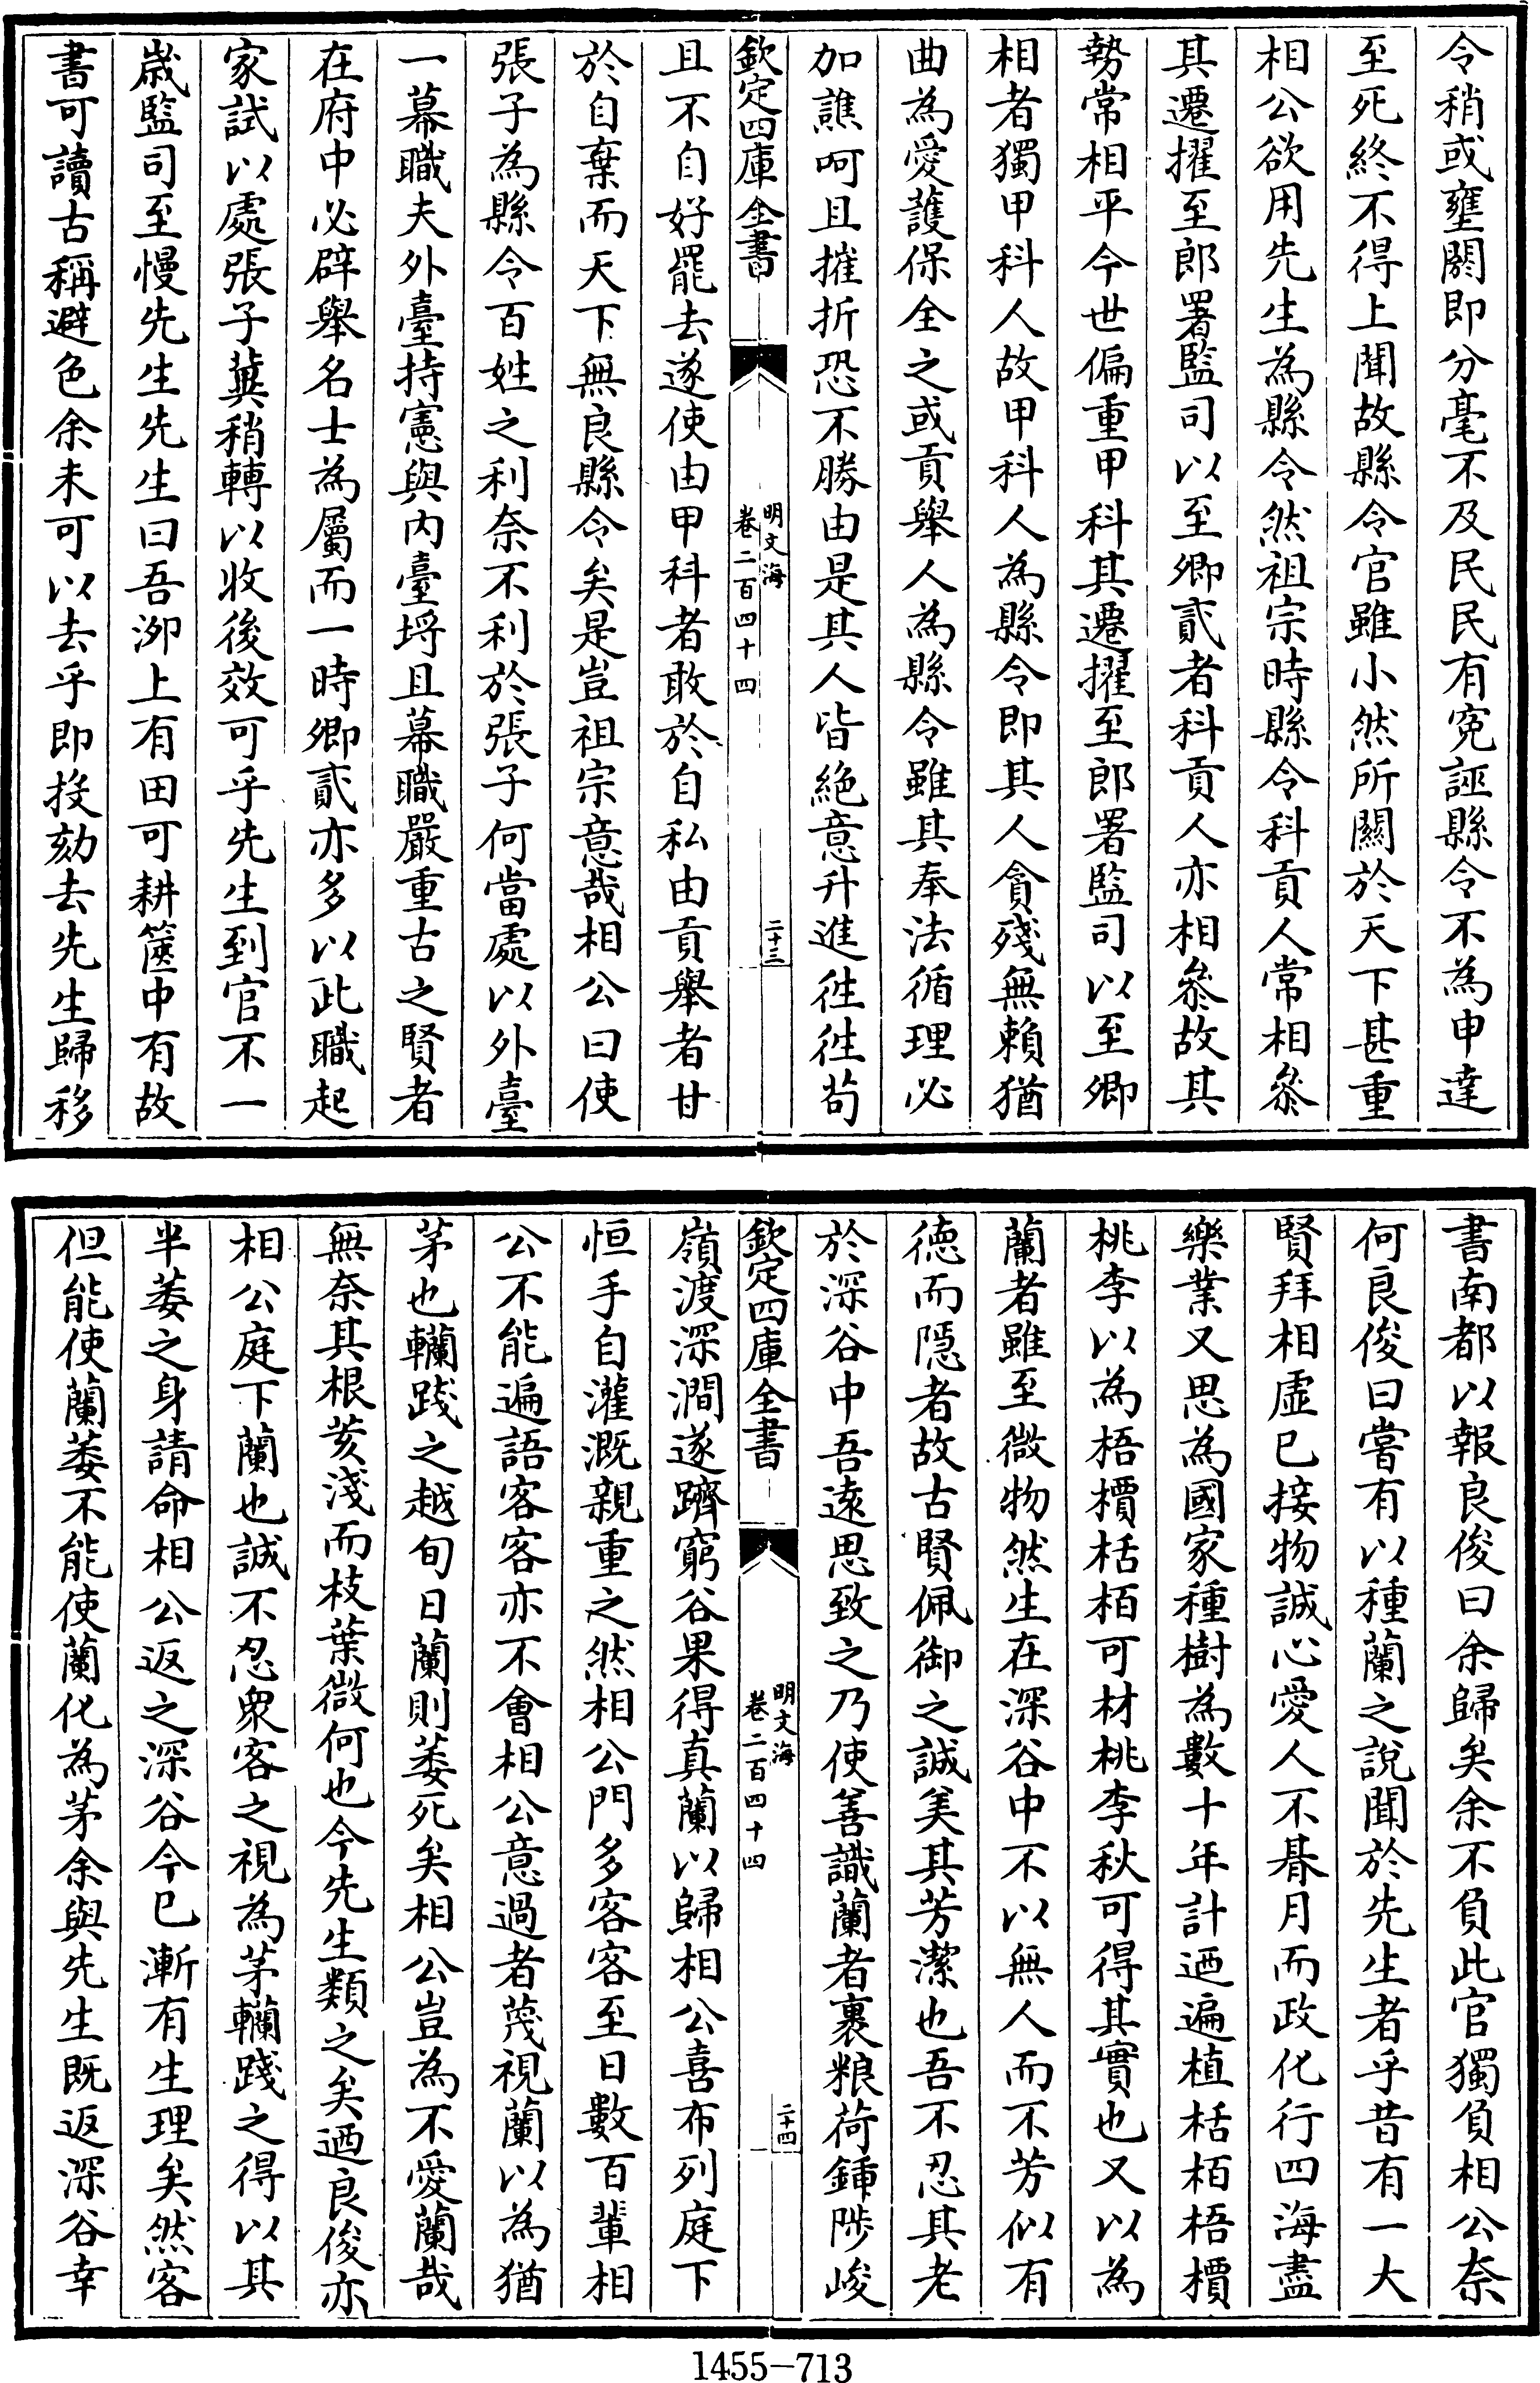 令稍或壅閼即分毫不及民民有寃誣縣令不為申達
至死終不得上聞故縣令官雖小然所關於天下甚重
相公欲用先生為縣令然祖宗時縣令科貢人常相叅
其遷擢至郎署監司以至卿貳者科貢人亦相叅故其
勢常相平今世偏重甲科其遷擢至郎署監司以至卿
相者獨甲科人故甲科人為縣令即其人貪殘無賴猶
曲為愛護保全之或貢舉人為縣令雖其奉法循理必
加譙呵且摧折恐不勝由是其人皆絶意升進徃徃苟
欽定四庫全書
明文海
卷二百四十四
二十三
且不自好罷去遂使由甲科者敢於自私由貢舉者甘
於自棄而天下無良縣令矣是豈祖宗意哉相公曰使
張子為縣令百姓之利奈不利於張子何當處以外臺
一幕職夫外臺持憲與內臺埒且幕職嚴重古之賢者
在府中必辟舉名士為屬而一時卿貳亦多以此職起
家試以處張子冀稍轉以收後效可乎先生到官不一
嵗監司至慢先生先生曰吾泖上有田可耕篋中有故
書可讀古稱避色余未可以去乎即投劾去先生歸移
書南都以報良俊曰余歸矣余不負此官獨負相公奈
何良俊曰嘗有以種蘭之說聞於先生者乎昔有一大
賢拜相虛已接物誠心愛人不朞月而政化行四海盡
樂業又思為國家種樹為數十年計迺遍植栝栢梧檟
桃李以為梧檟栝栢可材桃李秋可得其實也又以為
蘭者雖至微物然生在深谷中不以無人而不芳似有
德而隱者故古賢佩御之誠美其芳潔也吾不忍其老
於深谷中吾逺思致之乃使善識蘭者裹粮荷鍤陟峻
欽定四庫全書
明文海
卷二百四十四
二十四
嶺渡深澗遂躋窮谷果得真蘭以歸相公喜布列庭下
恒手自灌溉親重之然相公門多客客至日數百輩相
公不能遍語客客亦不會相公意過者蔑視蘭以為猶
茅也轥踐之越旬日蘭則萎死矣相公豈為不愛蘭哉
無奈其根荄淺而枝葉微何也今先生類之矣迺良俊亦
相公庭下蘭也誠不忍衆客之視為茅轥踐之得以其
半萎之身請命相公返之深谷今已漸有生理矣然客
但能使蘭萎不能使蘭化為茅余與先生既返深谷幸
1455-713